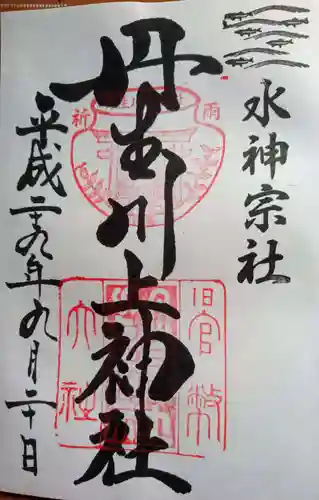 水神宗社
丹生川上神社
平成二十九年九月二十日
雨
祈
旧官幣
大社